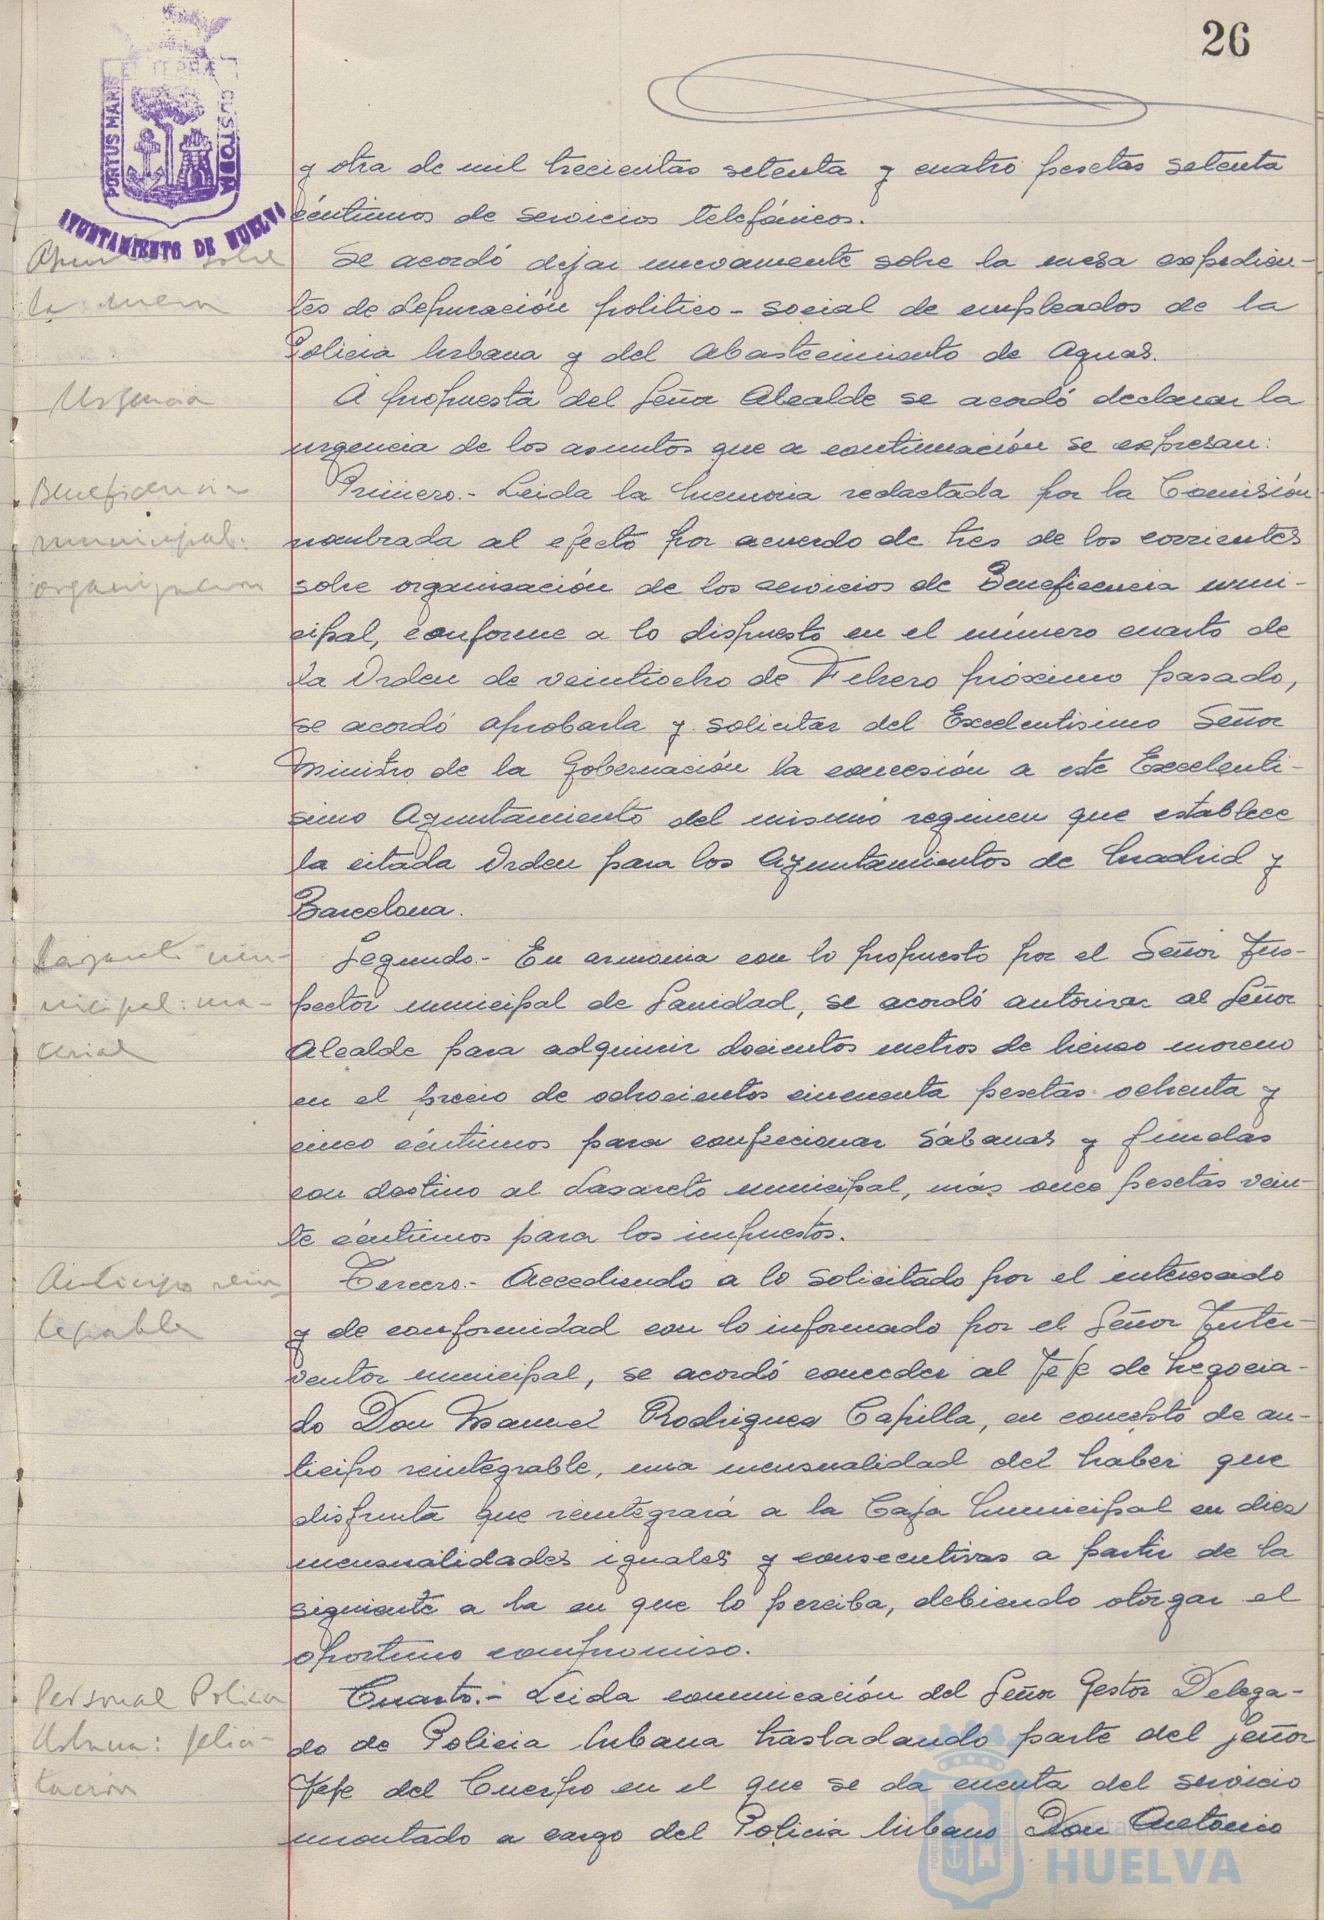 26
PORTUS MARIS ET TERRÆ CUSTODIA
AYUNTAMIENTO DE HUELVA
y otra de mil trecientas setenta y cuatro pesetas setenta
céntimos de servicios telefónicos.
sobre
la mesa
Se acordó dejar nuevamente sobre la mesa expedien-
tes de depuración politico-social de empleados de la
Policia Urbana y del Abastecimiento de Aguas.
Urgencia
A propuesta del Señor Alcalde se acordó declarar la
urgencia de los asuntos que a continuación se expresan:
Beneficencia
municipal:
organización
Primero.- Leida la Memoria redactada por la Comisión
nombrada al efecto por acuerdo de tres de los corrientes
sobre organización de los servicios de Beneficencia muni-
cipal, conforme a lo dispuesto en el número cuarto de
la Orden de veintiocho de Febrero próximo pasado,
se acordó aprobarla y solicitar del Excelentisimo Señor
Ministro de la Gobernación la concesión a este Excelenti-
simo Ayuntamiento del mismo regimen que establece
la citada Orden para los Ayuntamientos de Madrid y
Barcelona.
Lazareto mu-
nicipal: ma-
terial
Segundo.- En armonia con lo propuesto por el Señor Ins-
pector municipal de Sanidad, se acordó autorizar al Señor
Alcalde para adquirir docientos metros de lienzo moreno
en el precio de ochocientos cincuenta pesetas ochenta y
cinco céntimos para confeccionar sábanas y fundas
con destino al Lazareto municipal, más once pesetas vein-
te céntimos para los impuestos.
Anticipo rein-
tegrable
Tercero.- Accediendo a lo solicitado por el interesado
y de conformidad con lo informado por el Señor Inter-
ventor municipal, se acordó conceder al Jefe de Negocia-
do Don Manuel Rodriguez Capilla, en concepto de an-
ticipo reintegrable, una mensualidad del haber que
disfruta que reintegrará a la Caja Municipal en diez
mensualidades iguales y consecutivas a partir de la
siguiente a la en que lo perciba, debiendo otorgar el
oportuno compromiso.
Personal Policia
Urbana: felici-
tación
Cuarto.- Leida comunicación del Señor Gestor Delega-
do de Policia Urbana trasladando parte del Señor
Jefe del Cuerpo en el que se da cuenta del servicio
montado a cargo del Policia Urbano Don Antonio
HUELVA